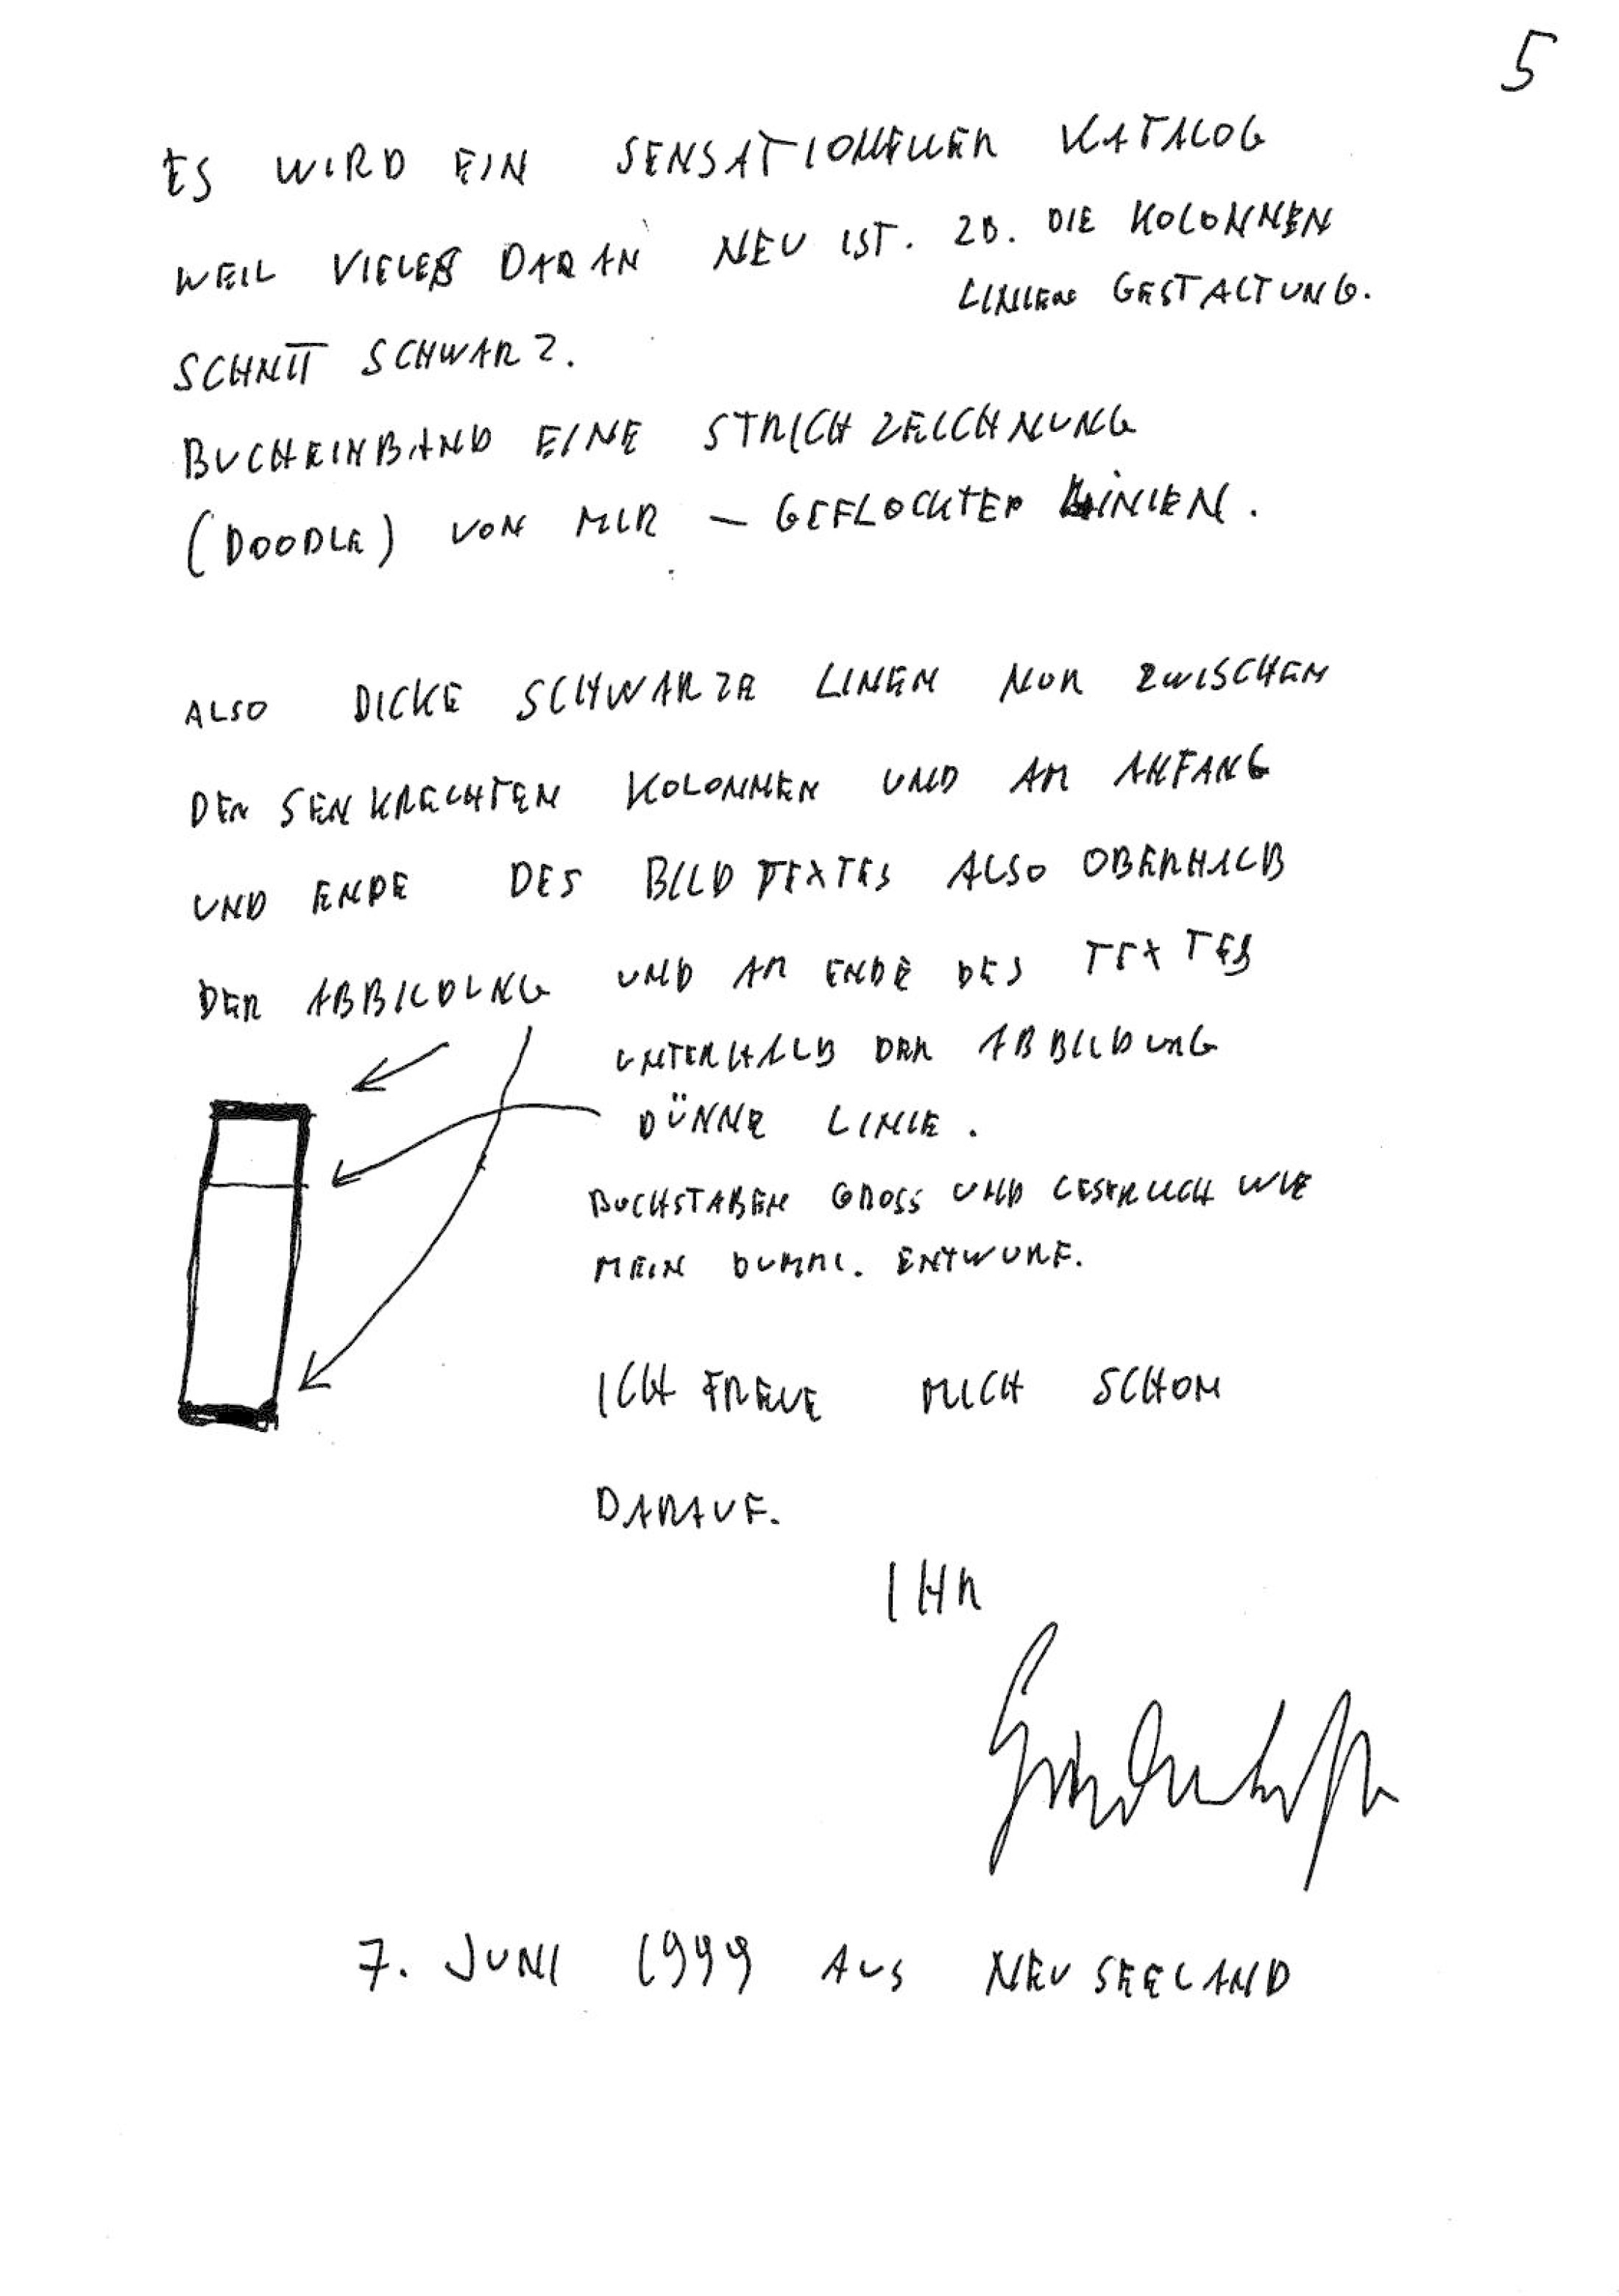 5
ES WIRD EIN SENSATIONELLER KATALOG
WEIL VIELES DARAN NEU IST. ZB. DIE KOLONNEN
LINIEN GESTALTUNG.
SCHNITT SCHWARZ.
BUCHEINBAND EINE STRICHZEICHNUNG
(DOODLE) VON MIR – GEFLOCKTER LINIEN.
ALSO DICKE SCHWARZE LINEN NUR ZWISCHEN
DEN SENKRECHTEN KOLONNEN UND AM ANFANG
UND ENDE DES BILDTEXTES ALSO OBERHALB
DER ABBILDUNG UND AM ENDE DES TEXTES
UNTERHALB DER ABBILDUNG
DÜNNE LINIE.
BUCHSTABEN GROSS UND LESERLICH WIE
MEIN DUMMI. ENTWURF.
ICH FREUE MICH SCHON
DARAUF.
IHR
7. JUNI 1999 AUS NEUSEELAND